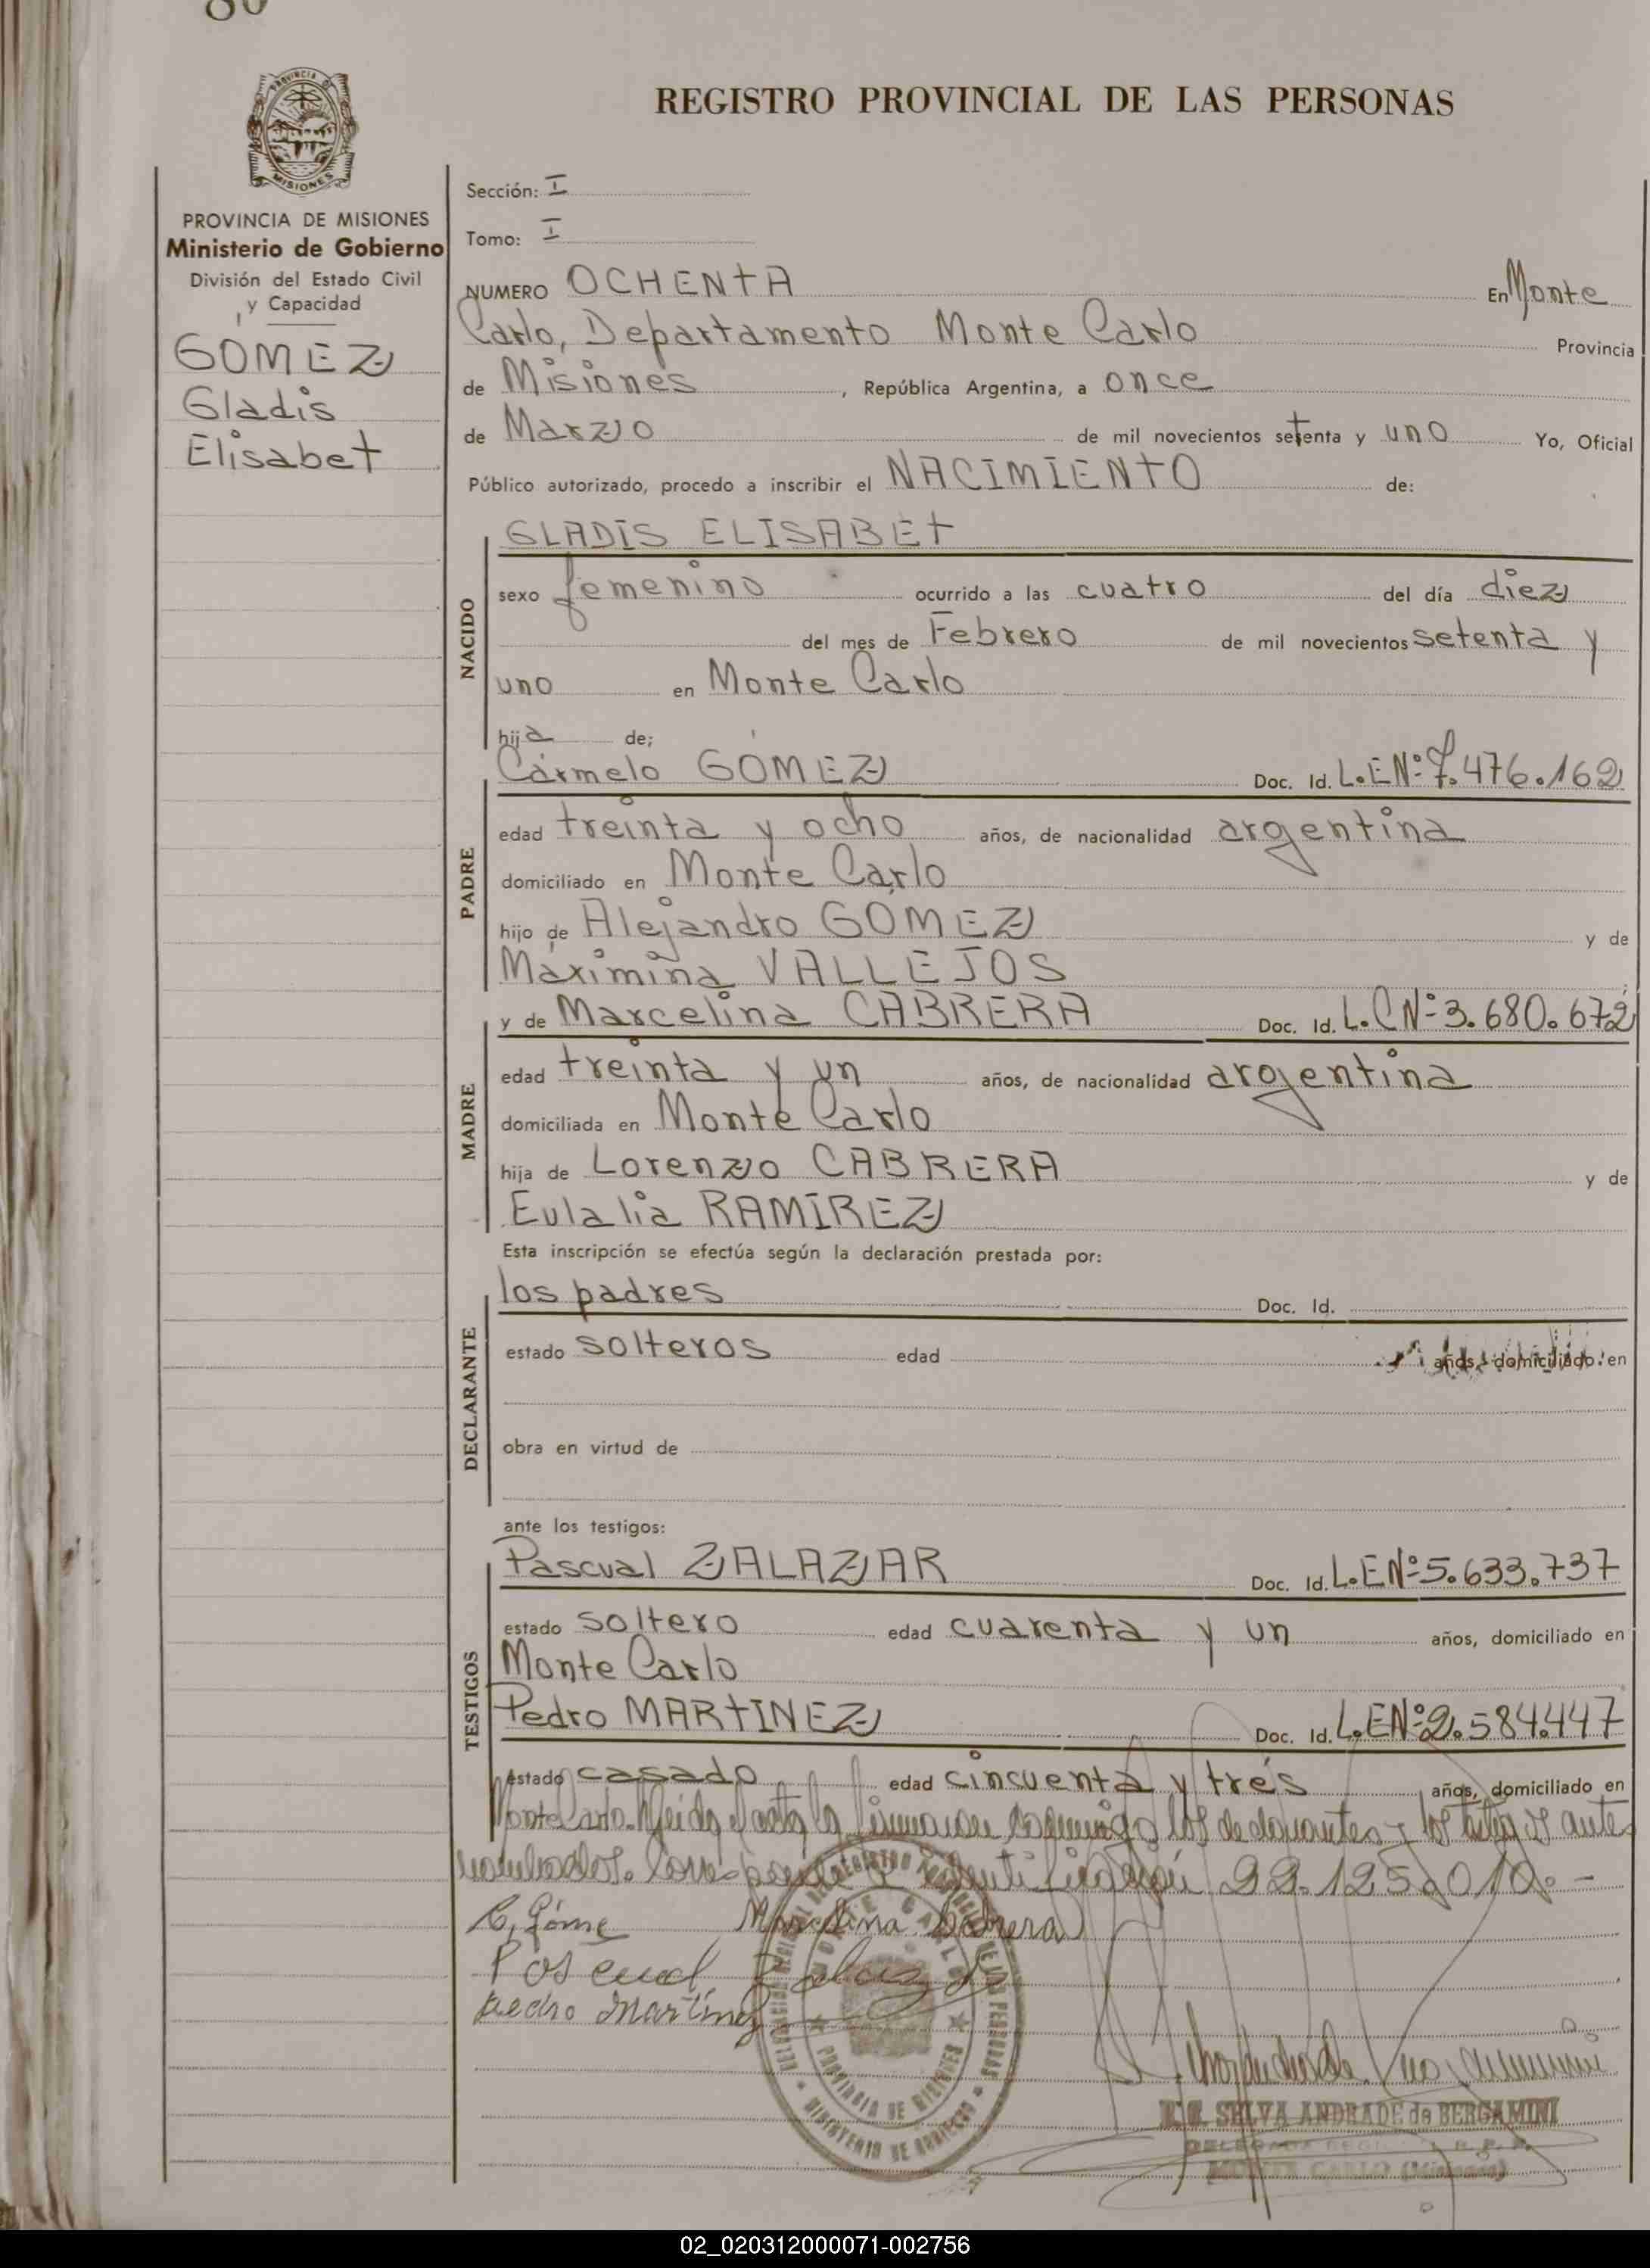 80
REGISTRO PROVINCIAL DE LAS PERSONAS
PROVINCIA DE MISIONES
Ministerio de Gobierno
División del Estado Civil
y Capacidad
GOMEZ
Gladis
Elisabet
Sección: I
Tomo: I
NUMERO OCHENTA En Monte
Carlo, Departamento Monte Carlo Provincia
de Misiones, República Argentina, a once
de Marzo de mil novecientos setenta y uno Yo, Oficial
Público autorizado, procedo a inscribir el NACIMIENTO de:
NACIDO
GLADIS ELISABET
sexo femenino ocurrido a las cuatro del día diez
del mes de Febrero de mil novecientos setenta y
uno en Monte Carlo
hija de;
PADRE
Carmelo GOMEZ Doc. Id. L.E.Nº 7.476.162
edad treinta y ocho años, de nacionalidad argentina
domiciliado en Monte Carlo
hijo de Alejandro GOMEZ y de
Maximina VALLEJOS
MADRE
y de Marcelina CABRERA Doc. Id. L.C Nº 3.680.672
edad treinta y un años, de nacionalidad argentina
domiciliada en Monte Carlo
hija de Lorenzo CABRERA y de
Eulalia RAMIREZ
Esta inscripción se efectúa según la declaración prestada por:
DECLARANTE
los padres Doc. Id.
estado solteros edad años, domiciliado en
obra en virtud de
ante los testigos:
TESTIGOS
Pascual ZALAZAR Doc. Id. L.E.Nº 5.633.737
estado soltero edad cuarenta y un años, domiciliado en
Monte Carlo
Pedro MARTINEZ Doc. Id. L.E.Nº 2.584.447
estado casado edad cincuenta y tres años, domiciliado en
Monte Carlo. Leida el acta la firmaron conmigo los declarantes y los testigos ante
nombrados. Corresponde identificación 22.125.010.-
C. Góme Marcelina Cabrera
Pascual Zalazar
Pedro Martinez
MONTE CARLO
PROVINCIA DE MISIONES
MINISTERIO DE GOBIERNO
SELVA ANDRADE de BERGAMINI
MONTE CARLO (Misiones)
02_020312000071-002756